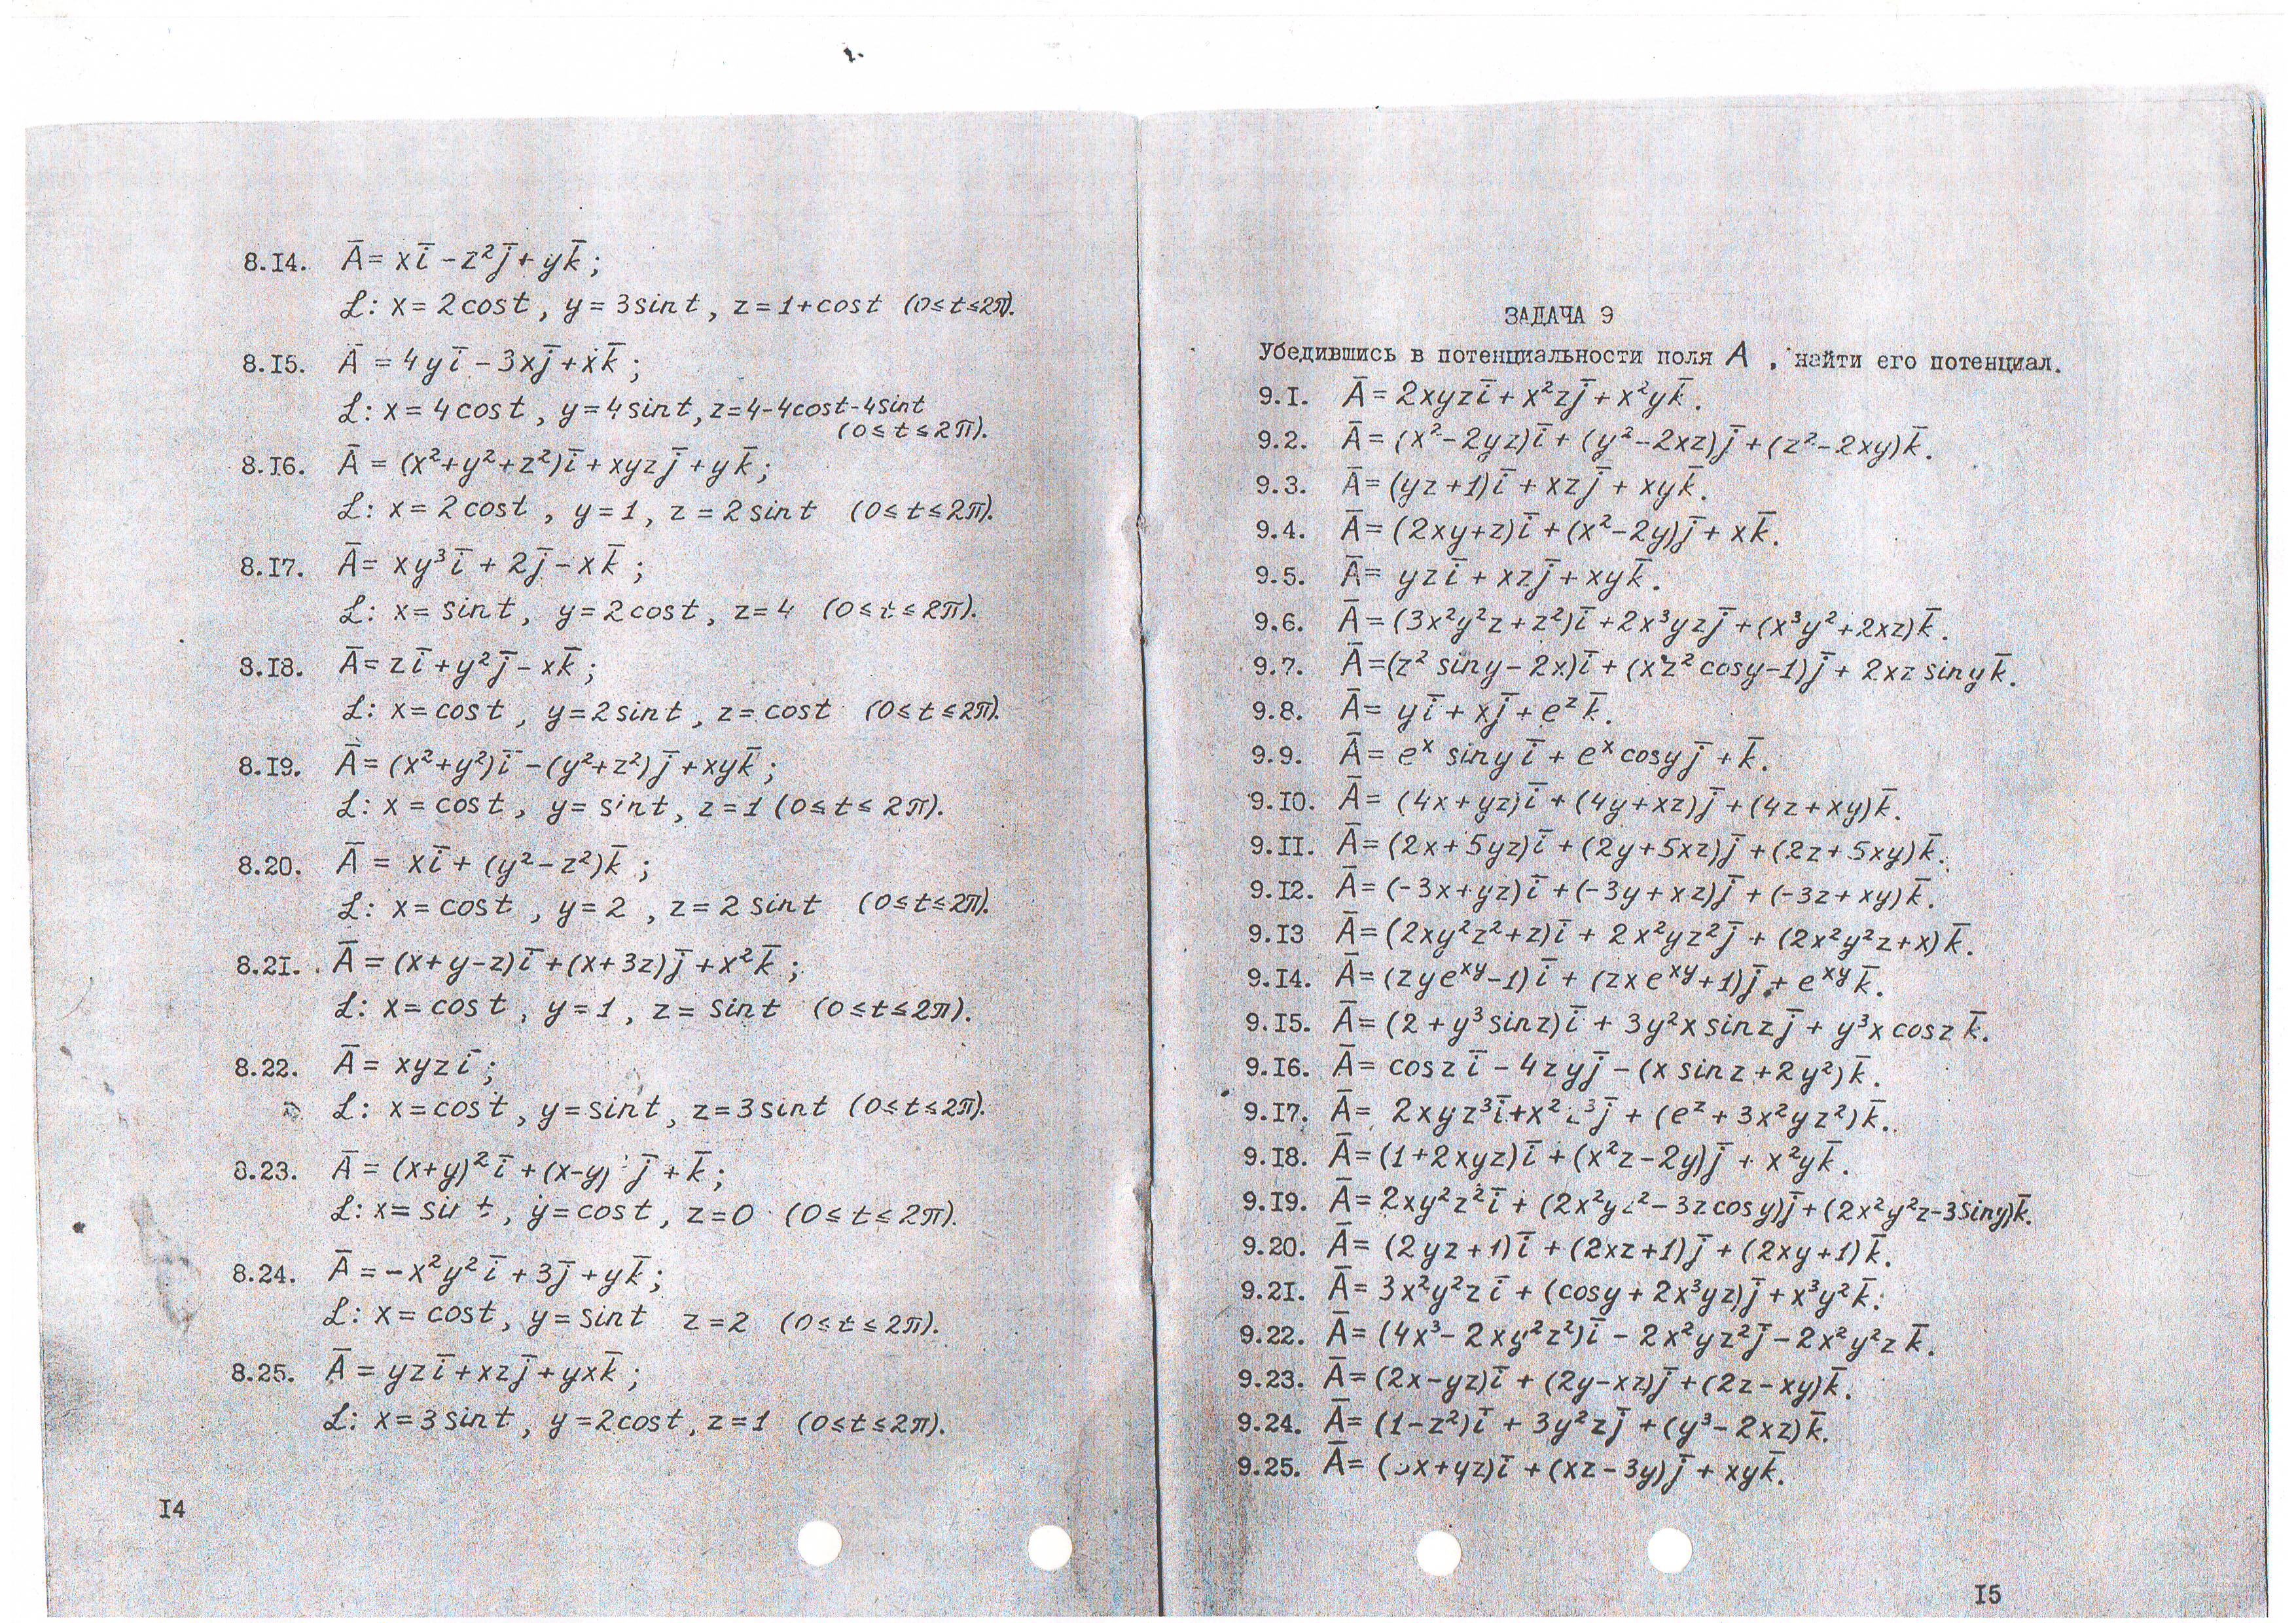 8.14. Ā = xī − z²j̄ + yk̄ ;
L: x = 2cost , y = 3sint , z = 1+cost (0≤t≤2π).
8.15. Ā = 4yī − 3xj̄ + xk̄ ;
L: x = 4cost , y = 4sint, z=4-4cost-4sint
(0≤t≤2π).
8.16. Ā = (x²+y²+z²)ī + xyzj̄ + yk̄ ;
L: x = 2cost , y = 1, z = 2sint (0≤t≤2π).
8.17. Ā = xy³ī + 2j̄ − xk̄ ;
L: x = sint, y = 2cost, z = 4 (0≤t≤2π).
8.18. Ā = zī + y²j̄ − xk̄ ;
L: x = cost , y = 2sint , z = cost (0≤t≤2π).
8.19. Ā = (x²+y²)ī − (y²+z²)j̄ + xyk̄ ;
L: x = cost , y = sint, z = 1 (0≤t≤2π).
8.20. Ā = xī + (y²−z²)k̄ ;
L: x = cost , y = 2 , z = 2sint (0≤t≤2π).
8.21. Ā = (x+y−z)ī + (x+3z)j̄ + x²k̄ ;
L: x = cost , y = 1 , z = sint (0≤t≤2π).
8.22. Ā = xyzī ;
L: x = cost , y = sint , z = 3sint (0≤t≤2π).
8.23. Ā = (x+y)²ī + (x−y) j̄ + k̄ ;
L: x = sin t , y = cost , z = 0 (0≤t≤2π).
8.24. Ā = −x²y²ī + 3j̄ + yk̄ ;
L: x = cost, y = sint z = 2 (0≤t≤2π).
8.25. Ā = yzī + xzj̄ + yxk̄ ;
L: x = 3sint , y = 2cost , z = 1 (0≤t≤2π).
14
ЗАДАЧА 9
Убедившись в потенциальности поля A , найти его потенциал.
9.1. Ā = 2xyzī + x²zj̄ + x²yk̄.
9.2. Ā = (x²−2yz)ī + (y²−2xz)j̄ + (z²−2xy)k̄.
9.3. Ā = (yz+1)ī + xzj̄ + xyk̄.
9.4. Ā = (2xy+z)ī + (x²−2y)j̄ + xk̄.
9.5. Ā = yzī + xzj̄ + xyk̄.
9.6. Ā = (3x²y²z+z²)ī + 2x³yzj̄ + (x³y²+2xz)k̄.
9.7. Ā = (z² siny − 2x)ī + (xz² cosy−1)j̄ + 2xz sinyk̄.
9.8. Ā = yī + xj̄ + eᶻk̄.
9.9. Ā = eˣ sinyī + eˣ cosyj̄ + k̄.
9.10. Ā = (4x+yz)ī + (4y+xz)j̄ + (4z+xy)k̄.
9.11. Ā = (2x+5yz)ī + (2y+5xz)j̄ + (2z+5xy)k̄.
9.12. Ā = (−3x+yz)ī + (−3y+xz)j̄ + (−3z+xy)k̄.
9.13 Ā = (2xy²z²+z)ī + 2x²yz²j̄ + (2x²y²z+x)k̄.
9.14. Ā = (zyeˣʸ−1)ī + (zxeˣʸ+1)j̄ + eˣʸk̄.
9.15. Ā = (2+y³sinz)ī + 3y²x sinzj̄ + y³x cosz k̄.
9.16. Ā = coszī − 4zyj̄ − (x sinz+2y²)k̄.
9.17. Ā = 2xyz³ī + x² ³j̄ + (eᶻ+3x²yz²)k̄.
9.18. Ā = (1+2xyz)ī + (x²z−2y)j̄ + x²yk̄.
9.19. Ā = 2xy²z²ī + (2x²y ²−3z cosy)j̄ + (2x²y²z−3siny)k̄.
9.20. Ā = (2yz+1)ī + (2xz+1)j̄ + (2xy+1)k̄.
9.21. Ā = 3x²y²zī + (cosy+2x³yz)j̄ + x³y²k̄.
9.22. Ā = (4x³−2xy²z²)ī − 2x²yz²j̄ − 2x²y²z k̄.
9.23. Ā = (2x−yz)ī + (2y−xz)j̄ + (2z−xy)k̄.
9.24. Ā = (1−z²)ī + 3y²zj̄ + (y³−2xz)k̄.
9.25. Ā = ( x+yz)ī + (xz−3y)j̄ + xyk̄.
15